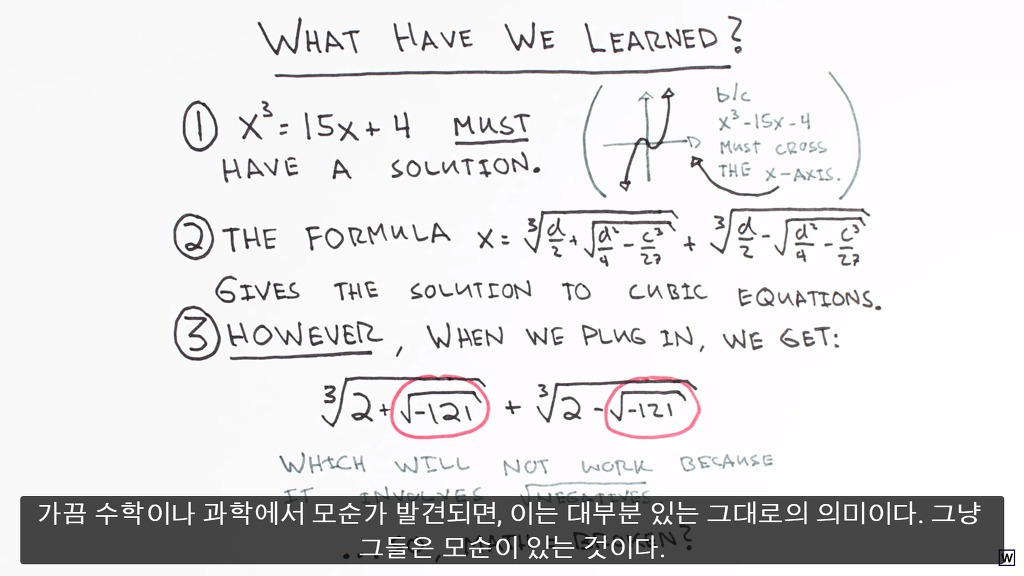 WHAT HAVE WE LEARNED?
① x³ = 15x + 4 MUST
HAVE A SOLUTION.
b/c
x³-15x-4
MUST CROSS
THE X-AXIS.
② THE FORMULA x = ∛(d/2 + √(d²/4 - c³/27)) + ∛(d/2 - √(d²/4 - c³/27))
GIVES THE SOLUTION TO CUBIC EQUATIONS.
③ HOWEVER, WHEN WE PLUG IN, WE GET:
∛(2+√-121) + ∛(2-√-121)
WHICH WILL NOT WORK BECAUSE
IT INVOLVES √NEGATIVES
가끔 수학이나 과학에서 모순가 발견되면, 이는 대부분 있는 그대로의 의미이다. 그냥
그들은 모순이 있는 것이다.
W